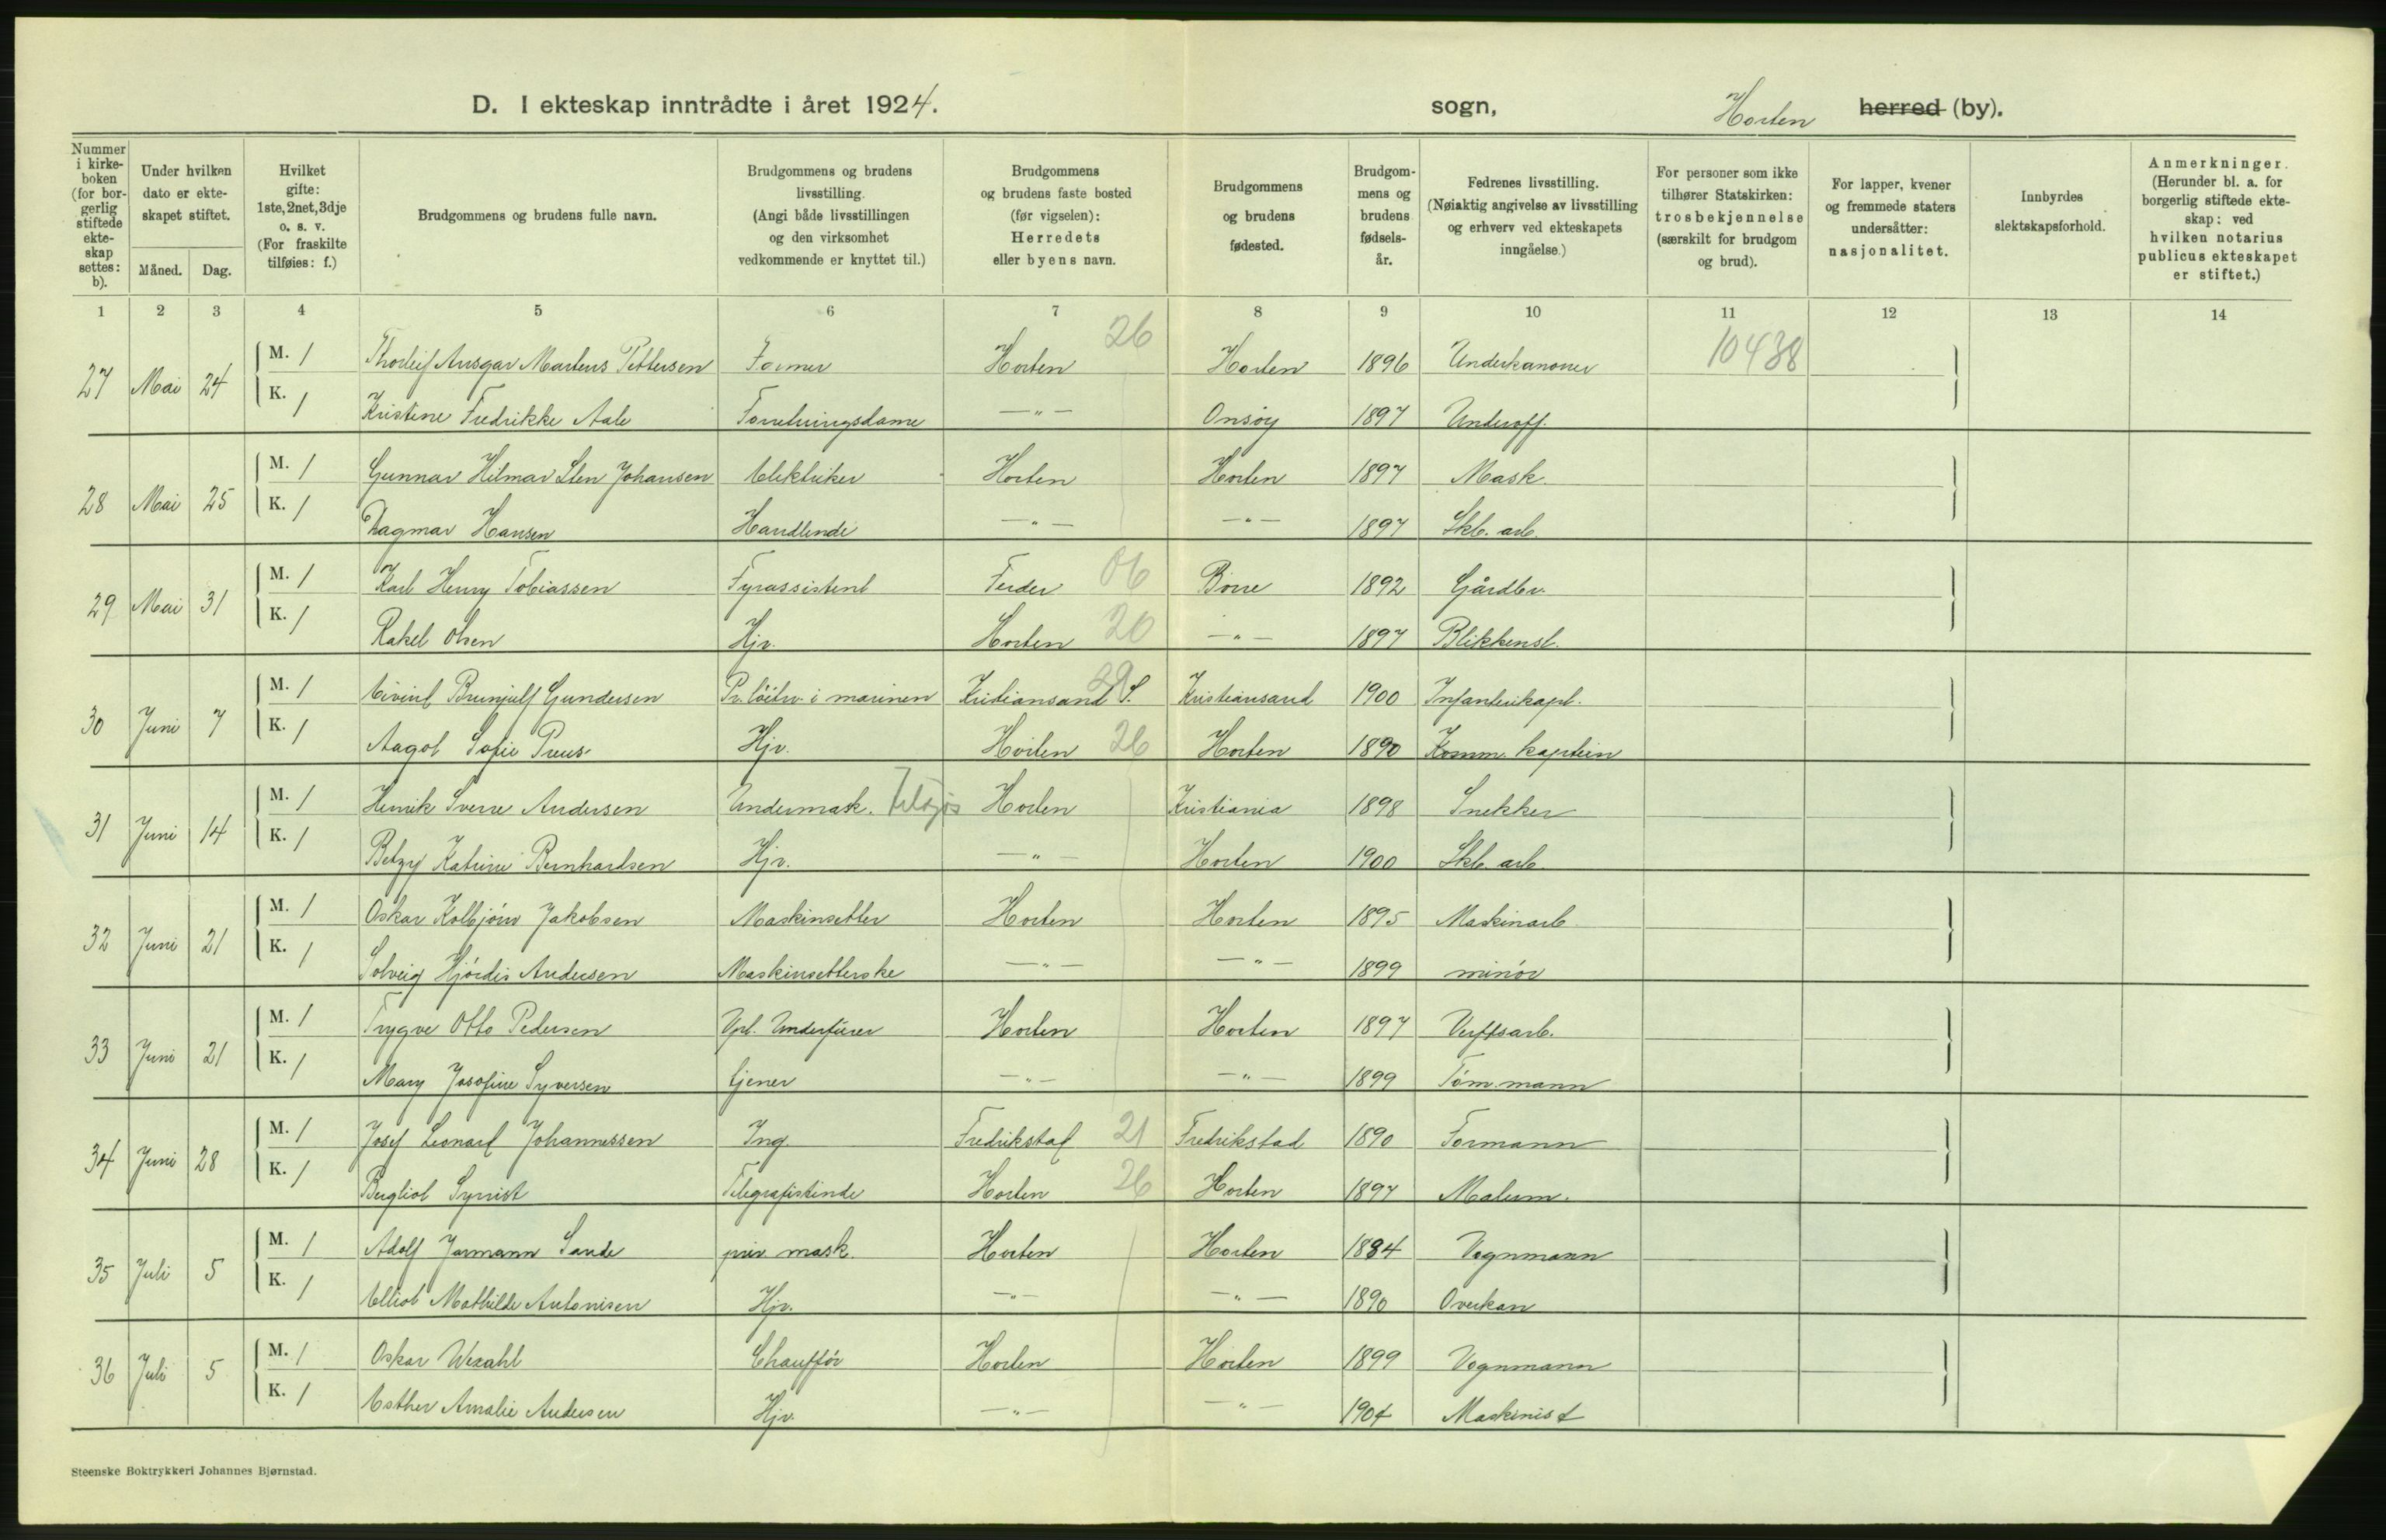 D. I ekteskap inntrådte i året 1924. sogn, Horten herred (by).
Nummer i kirkeboken (for borgerlig stiftede ekteskap settes: b).
Under hvilken dato er ekteskapet stiftet.
Måned. Dag.
Hvilket gifte: 1ste, 2net, 3dje o. s. v. (For fraskilte tilføies: f.)
Brudgommens og brudens fulle navn.
Brudgommens og brudens livsstilling. (Angi både livsstillingen og den virksomhet vedkommende er knyttet til.)
Brudgommens og brudens faste bosted (før vigselen): Herredets eller byens navn.
Brudgommens og brudens fødested.
Brudgommens og brudens fødselsår.
Fedrenes livsstilling. (Nøiaktig angivelse av livsstilling og erhverv ved ekteskapets inngåelse.)
For personer som ikke tilhører Statskirken: trosbekjennelse (særskilt for brudgom og brud).
For lapper, kvener og fremmede staters undersåtter: nasjonalitet.
Innbyrdes slektskapsforhold.
Anmerkninger. (Herunder bl. a. for borgerlig stiftede ekteskap: ved hvilken notarius publicus ekteskapet er stiftet.)
1 2 3 4 5 6 7 8 9 10 11 12 13 14
27 Mai 24 M. 1 Thorleif Ansgar Martens Pettersen Former Horten 26 Horten 1896 Underkanoner 10438
K. 1 Kristine Fredrikke Aale Forretningsdame —"— Onsöy 1897 Underoff.
28 Mai 25 M. 1 Gunnar Hilmar Sten Johansen Elektriker Horten Horten 1897 Mask.
K. 1 Dagmar Hansen Handlende —"— —"— 1897 Skb. arb.
29 Mai 31 M. 1 Karl Henry Tobiassen Fyrassistent Ferder 06 Borre 1892 Gårdbr.
K. 1 Rakel Olsen Hjv. Horten 20 —"— 1897 Blikkensl.
30 Juni 7 M. 1 Eivind Brunjulf Gundersen Pr. löitn. i marinen Kristiansand S. 29 Kristiansand 1900 Infanterikapt.
K. 1 Aagot Sofie Preus Hjv. Horten 26 Horten 1890 Komm. kaptein
31 Juni 14 M. 1 Henrik Sverre Andersen Undermask. tilsjøs Horten Kristiania 1898 Snekker
K. 1 Betzy Katrine Bernhardsen Hjv. —"— Horten 1900 Skb. arb.
32 Juni 21 M. 1 Oskar Kolbjörn Jakobsen Maskinsetter Horten Horten 1895 Maskinarb.
K. 1 Solveig Hjördis Andersen Maskinsetterske —"— —"— 1899 minör
33 Juni 21 M. 1 Trygve Otto Pedersen Vpl. Underfürer Horten Horten 1897 Verftsarb.
K. 1 Mary Josefine Syversen tjener —"— —"— 1899 Töm.mann
34 Juni 28 M. 1 Josef Leonard Johannessen Ing. Fredrikstad 21 Fredrikstad 1890 Formann
K. 1 Bergliot Syrrist Telegrafistinde Horten 26 Horten 1897 Malerm.
35 Juli 5 M. 1 Adolf Jarmann Sande priv. mask. Horten Horten 1884 Vognmann
K. 1 Elliot Mathilde Antonisen Hjv. —"— —"— 1890 Overkan
36 Juli 5 M. 1 Oskar Wexahl Chaufför Horten Horten 1899 Vognmann
K. 1 Esther Amalie Andersen Hjv. —"— —"— 1904 Maskinist
Steenske Boktrykkeri Johannes Bjørnstad.